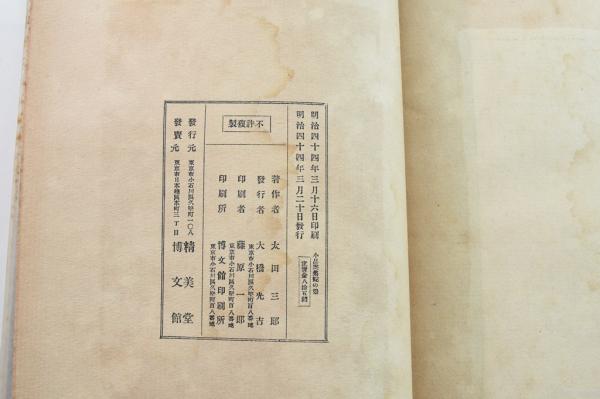 明治四十四年三月十六日印刷
明治四十四年三月二十日發行
定價金八拾五錢
不許複製
著作者 太田三郎
發行者 大橋光吉
東京市小石川區久堅町百八番地
印刷者 藤原一郎
東京市小石川區久堅町百八番地
印刷所 博文館印刷所
東京市小石川區久堅町百八番地
發行元 東京市小石川區久堅町一〇八 精美堂
發賣元 東京市日本橋區本町三丁目 博文館